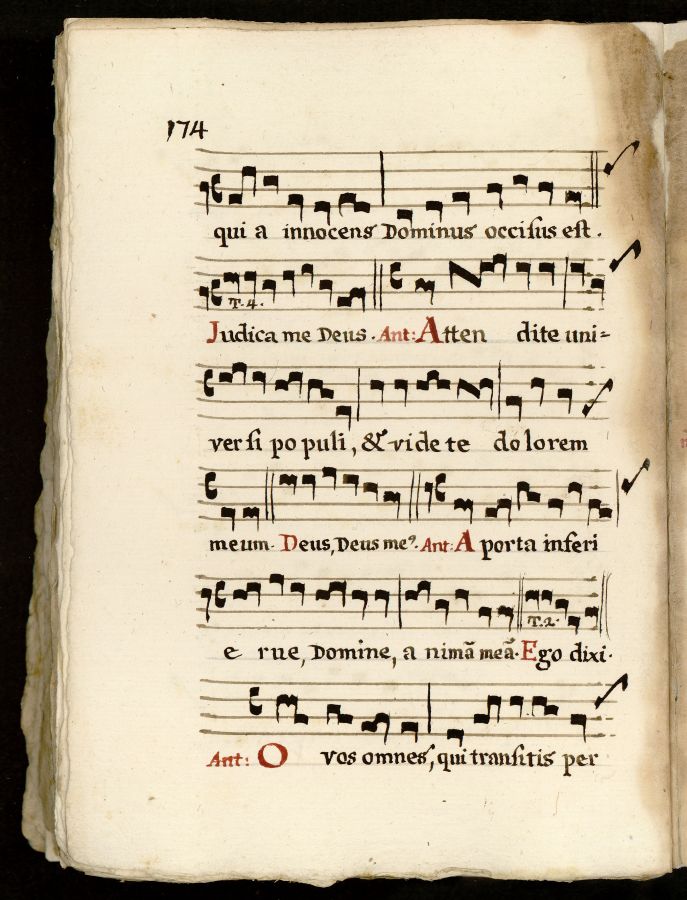 174
qui a innocens Dominus occiſus eſt.
T. 4.
Judica me Deus. Ant: Atten dite uni=
verſi populi, & videte dolorem
meum. Deus, Deus meꝰ. Ant: A porta inferi
T. 2.
e rue, Domine, a nimã meã. Ego dixi.
Ant: O vos omnes, qui tranſitis per